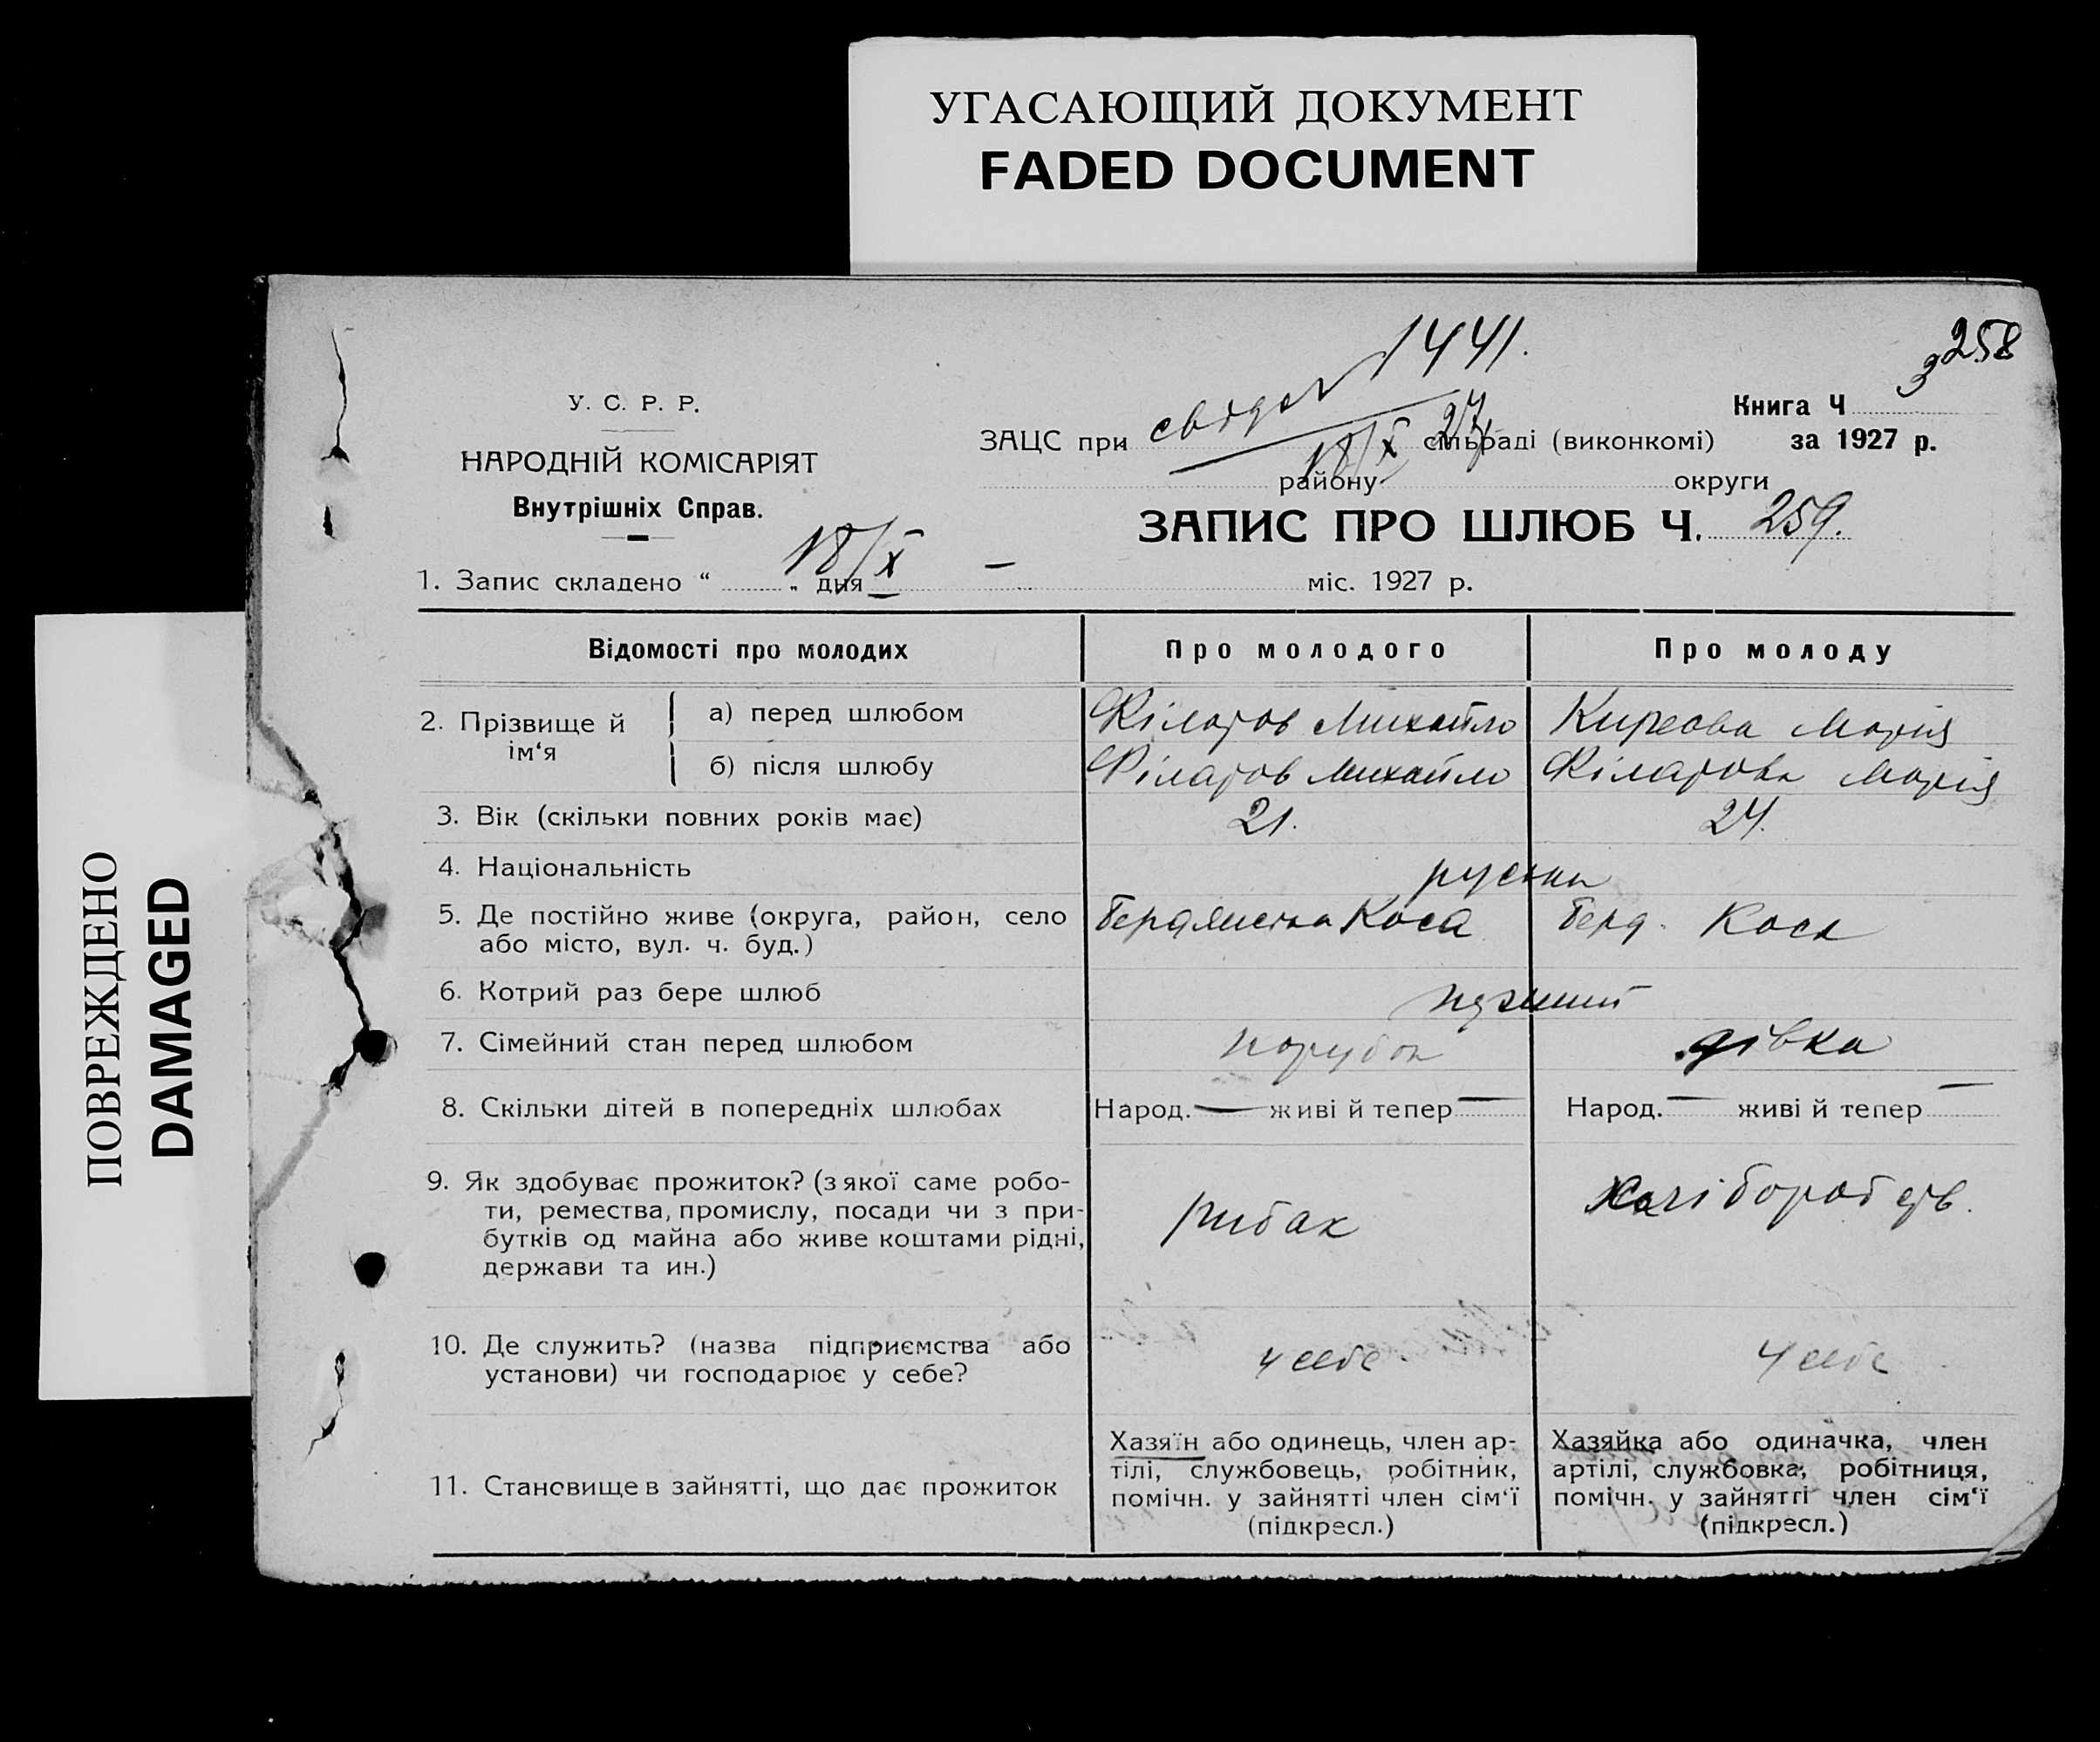 УГАСАЮЩИЙ ДОКУМЕНТ
FADED DOCUMENT
ПОВРЕЖДЕНО
DAMAGED
1441.
258
3
У. С. Р. Р.
НАРОДНІЙ КОМІСАРІЯТ
Внутрішніх Справ.
Книга Ч
ЗАЦС при 18/X 27 сільраді (виконкомі) за 1927 р.
району округи
ЗАПИС ПРО ШЛЮБ Ч. 259.
1. Запис складено “ 18/X „ дня — міс. 1927 р.
Відомості про молодих Про молодого Про молоду
2. Прізвище й ім‘я
а) перед шлюбом Філатов Михайло Марія
б) після шлюбу Філатов Михайло Філатова Марія
3. Вік (скільки повних років має) 21. 24.
4. Національність руські
5. Де постійно живе (округа, район, село Бердянська Коса Берд. Коса
або місто, вул. ч. буд.)
6. Котрий раз бере шлюб перший
7. Сімейний стан перед шлюбом парубок дівка
8. Скільки дітей в попередніх шлюбах Народ. — живі й тепер — Народ. — живі й тепер —
9. Як здобуває прожиток? (з якої саме робо-
ти, ремества, промислу, посади чи з при- рибак
бутків од майна або живе коштами рідні,
держави та ин.)
10. Де служить? (назва підприємства або у себе. у себе
установи) чи господарює у себе?
11. Становище в зайнятті, що дає прожиток
Хазяїн або одинець, член ар-
тілі, службовець, робітник,
помічн. у зайнятті член сім‘ї
(підкресл.)
Хазяйка або одиначка, член
артілі, службовка, робітниця,
помічн. у зайнятті член сім‘ї
(підкресл.)